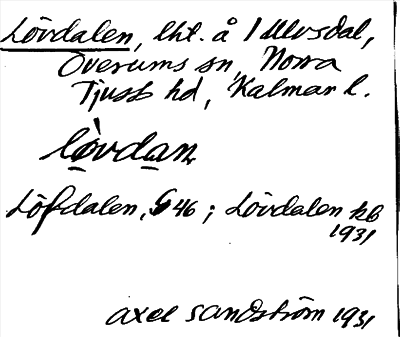 Lövdalen, lht. å 1 Ulvsdal,
Överums sn, Norra
Tjust hd, Kalmar l.
lò̱vda̱n
Löfdalen, G 46; Lövdalen kb
1931
Axel Sandström 1931